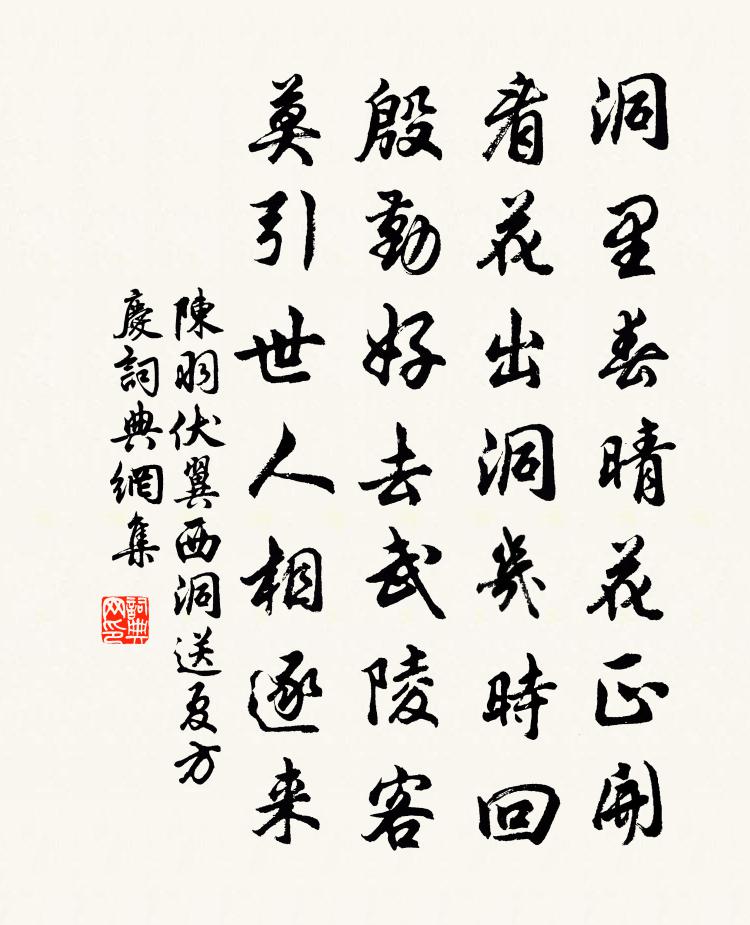 洞里春晴花正開
看花出洞幾時回
殷勤好去武陵客
莫引世人相逐來
陳羽伏翼西洞送夏方
慶詞典網集
詞典
网印